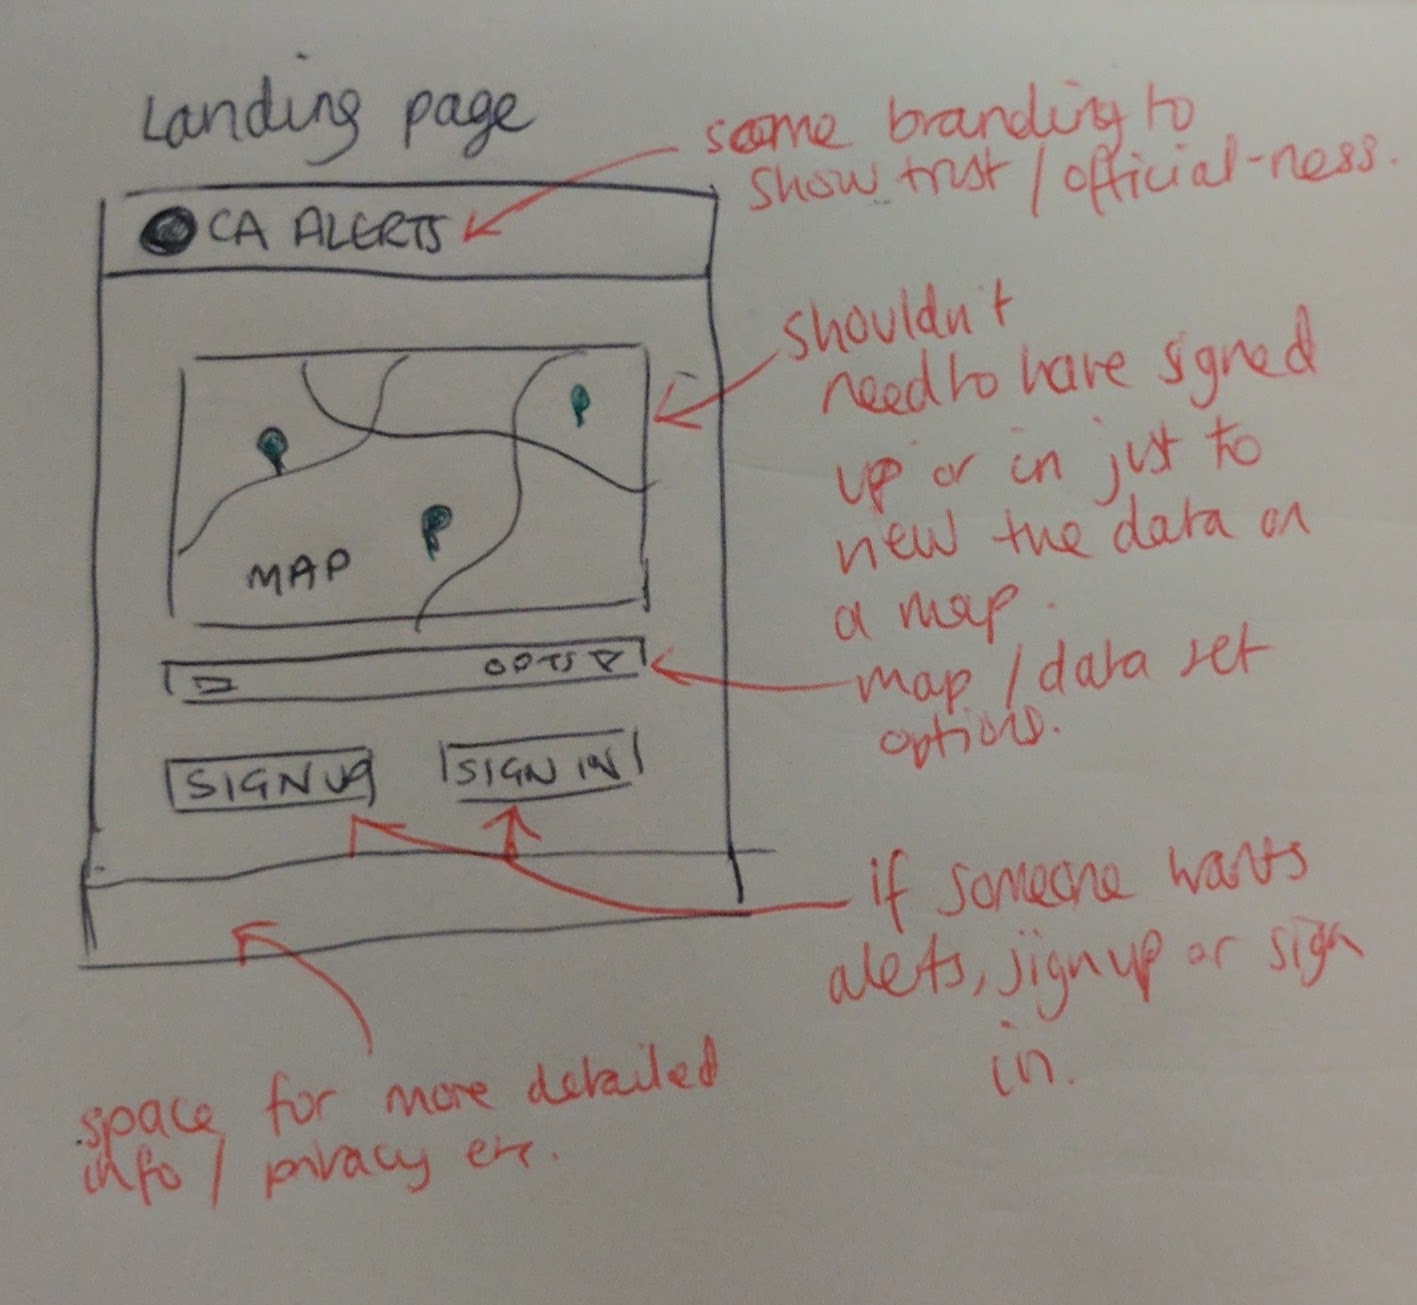 Landing page
some branding to
show trust / official-ness.
CA ALERTS
shouldn't
need to have signed
up or in just to
view the data on
a map.
MAP
OPTS
map / data set
options.
SIGN UP
SIGN IN
if someone wants
alerts, sign up or sign
in.
space for more detailed
info / privacy etc.